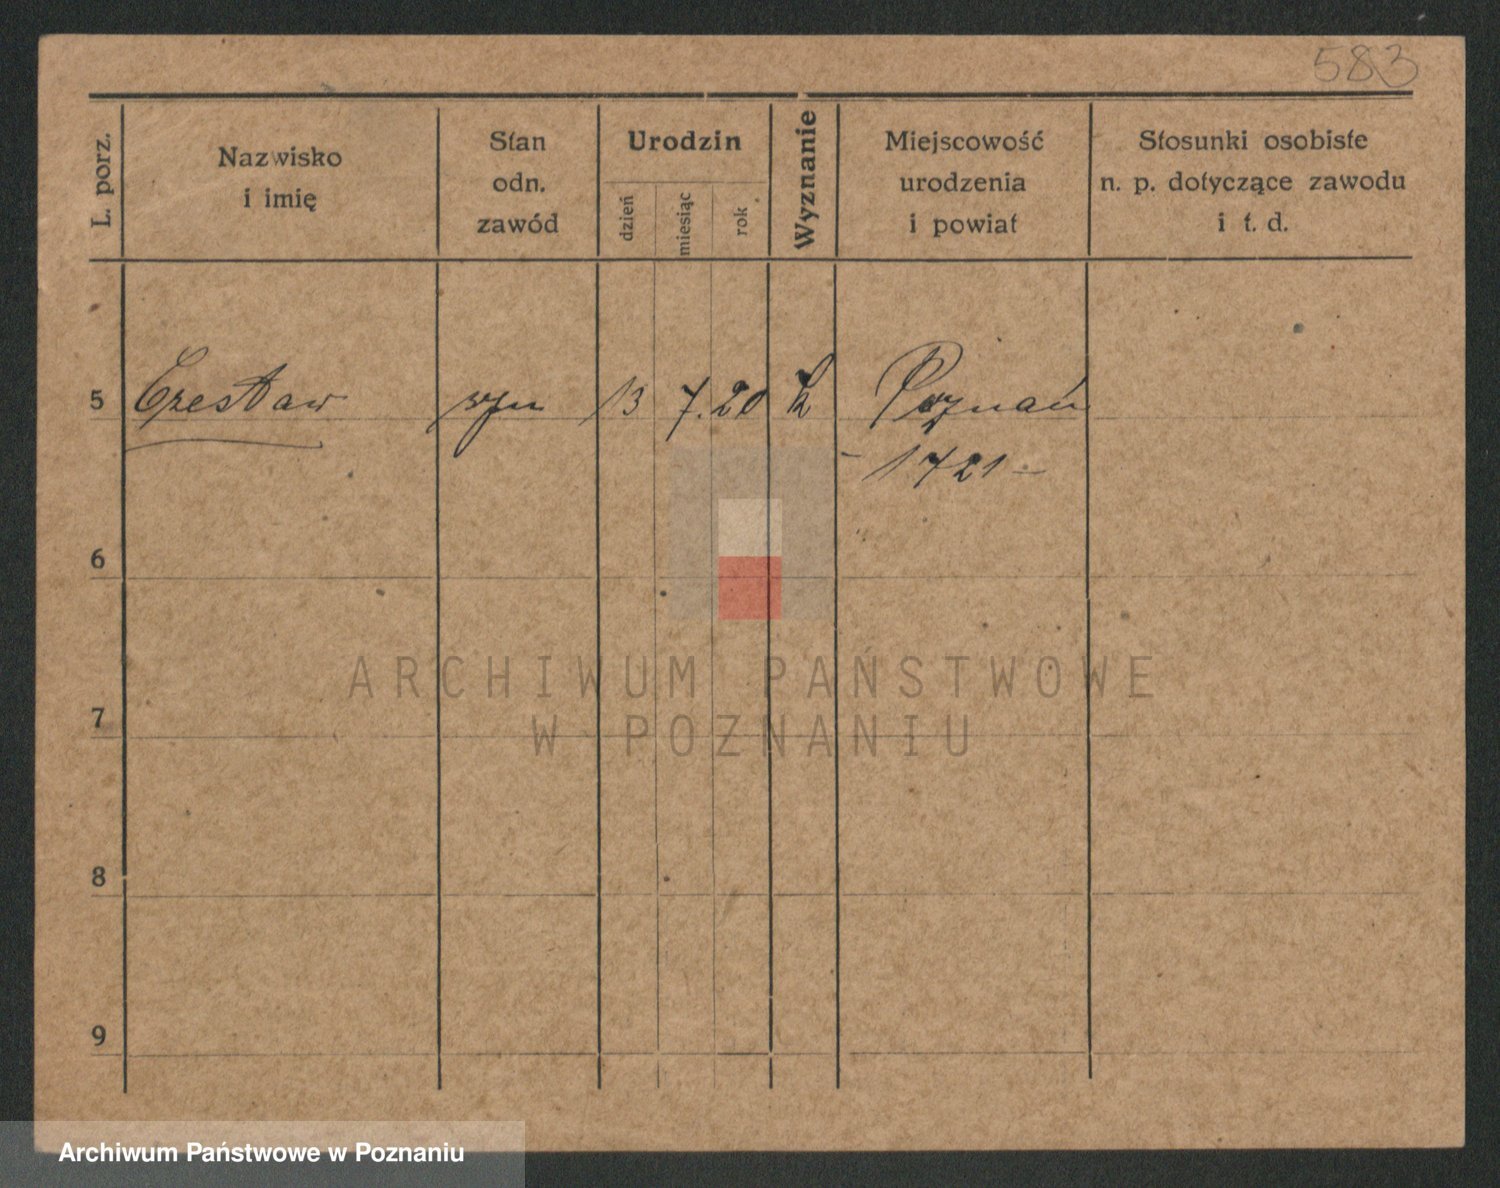 583
L. porz.
Nazwisko
i imię
Stan
odn.
zawód
Urodzin
dzień
miesiąc
rok
Wyznanie
Miejscowość
urodzenia
i powiat
Stosunki osobiste
n. p. dotyczące zawodu
i t. d.
5 Czesław syn 13 7. 20 k Poznań
- 1721 -
6
7
8
9
ARCHIWUM PAŃSTWOWE
W POZNANIU
Archiwum Państwowe w Poznaniu